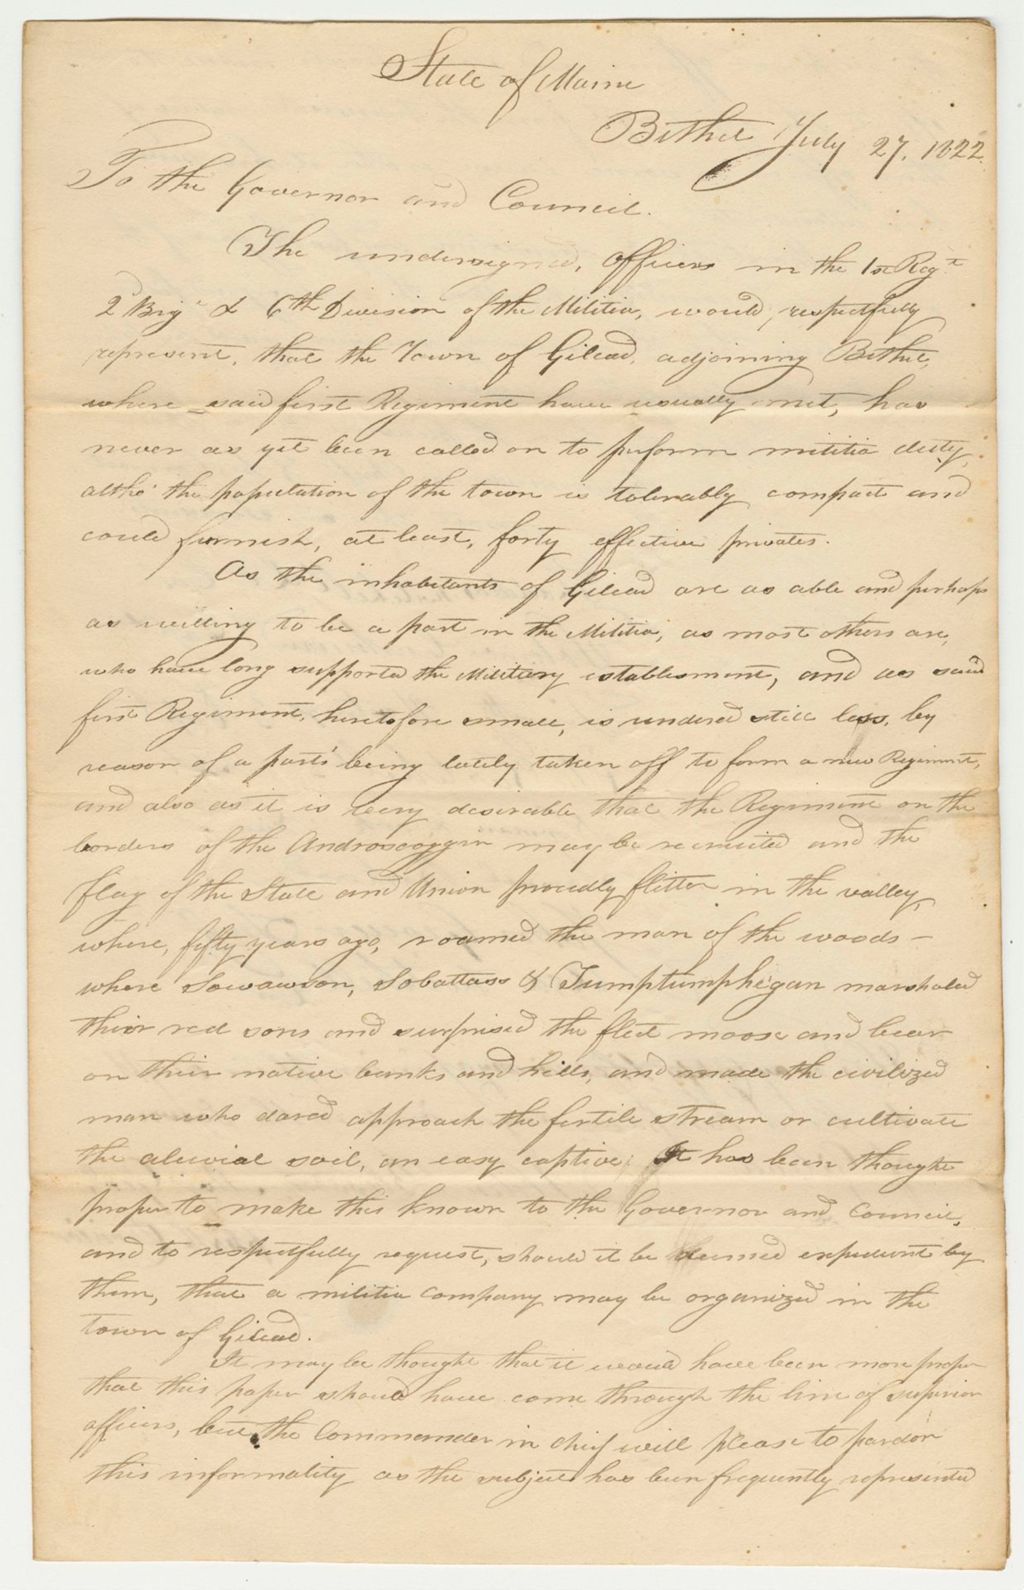 State of Maine
Bethel July 27. 1822.
To the Governor and Council.
The undersigned, officers in the 1st Regt
2d Brige & 6th Division of the Militia, would, respectfully
represent, that the Town of Gilead, adjoining Bethel,
where said first Regiment have usually met, has
never as yet been called on to perform militia duty,
altho' the population of the town is tolerably compact and
could furnish, at least, forty effective privates.
As the inhabitants of Gilead are as able and perhaps
as willing to be a part in the Militia, as most others are,
who have long supported the Military establisment, and as said
first Regiment, heretofore small, is rendered still less, by
reason of a part's being lately taken off to form a new Regiment,
and also as it is very desirable that the Regiment on the
borders of the Androscoggin may be recruited and the
flag of the State and Union proudly flitter in the valley,
where, fifty years ago, roamed the man of the woods –
where Sawawson, Sobattass & Tumptumphegan marshaled
their red sons and surprised the fleet moose and bear
on their native banks and hills, and made the civilized
man who dared approach the fertile stream or cultivate
the aluvial soil, an easy captive; It has been thought
proper to make this known to the Governor and Council,
and to respectfully request, should it be deemed expedient by
them, that a militia company may be organized in the
town of Gilead.
It may be thought that it would have been more proper
that this paper should have come through the line of superior
officers, but the Commander in chief will please to pardon
this informality as the subject has been frequently represented